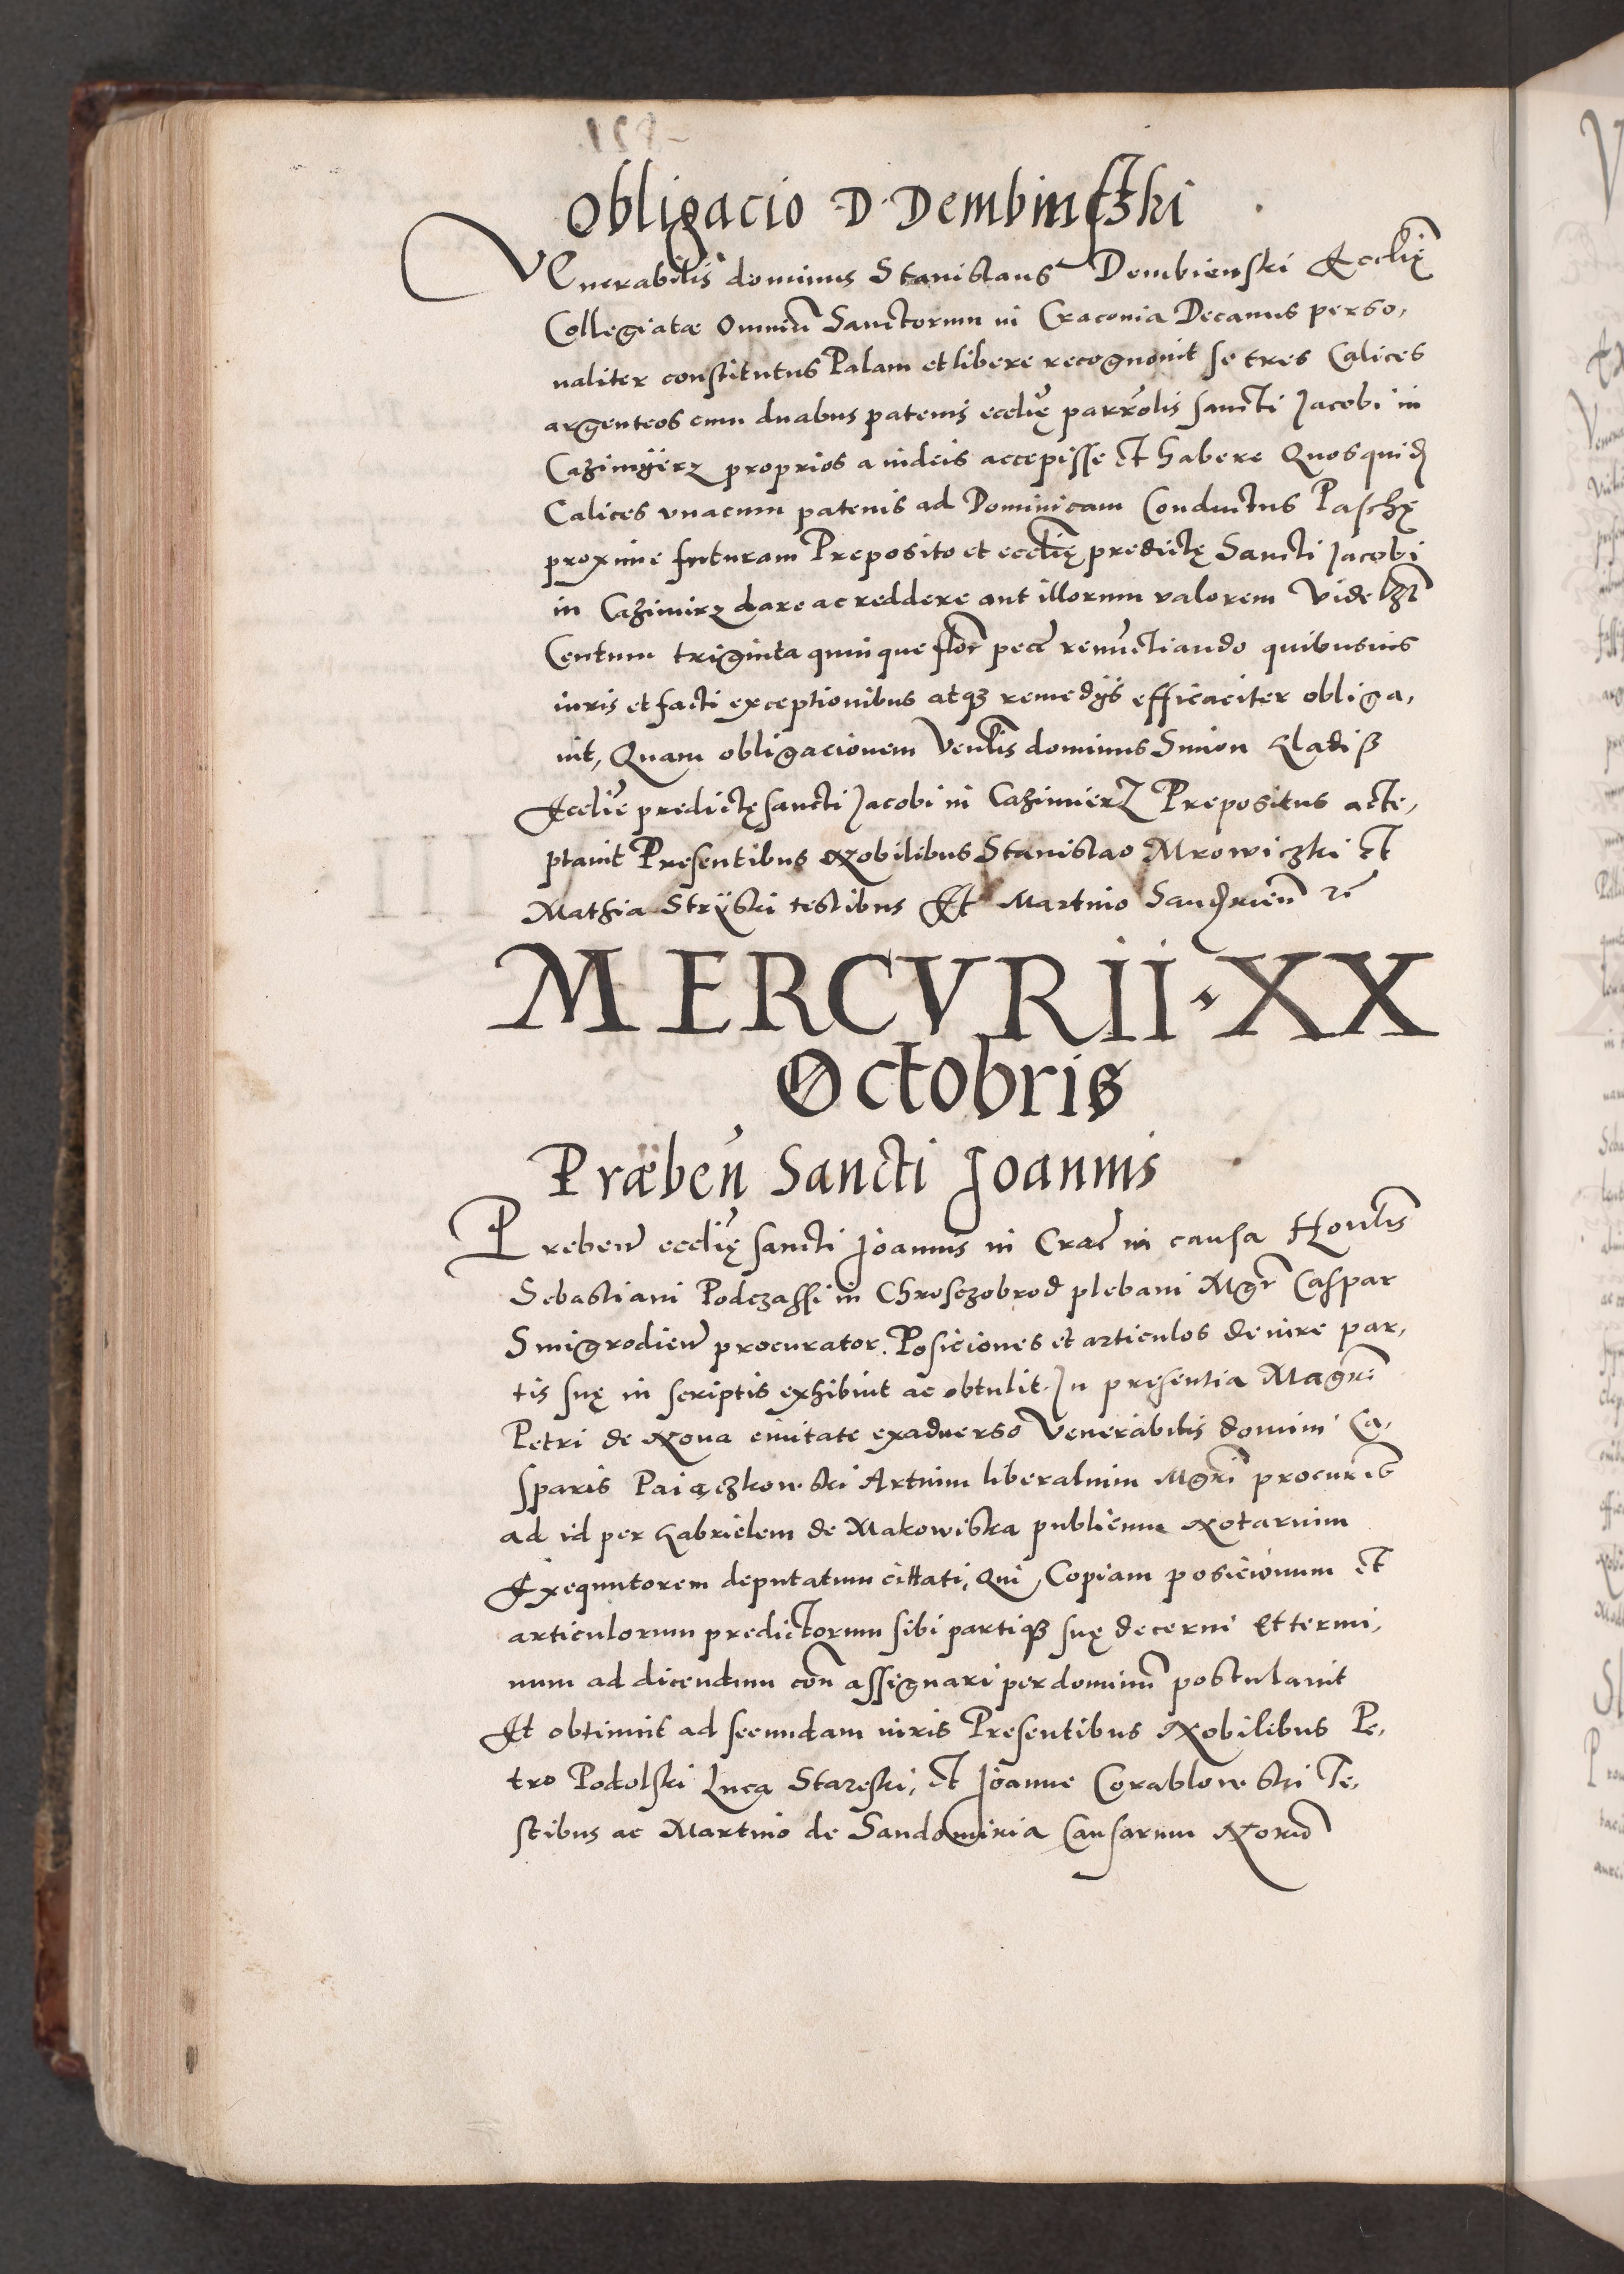 Obligacio D. Dembinsczki
VEnerabilis dominus Stanislaus Dembienski Eccl̄ię
Collegiatæ Omniū Sanctorum in Craconia Decanus perso,
naliter constitutus Palam et libere recognouit se tres Calices
argenteos cum duabus patenis eccl̄ię parrōlis sancti Jacobi in
Cazimÿerz proprios a iudeis accepisse et habere Quosquid
Calices vnacum patenis ad Dominicam Conductus Paschę
proxime futuram Preposito et eccl̄ię predictę Sancti Jacobi
in Cazimirz dare ac reddere aut illorum valorem Videlz̄t
Centum triginta quinque flor̄ pecc̄ renūctiando quibusuis
iuris et facti exceptionibus atqȝ remedÿs efficaciter obliga,
uit, Quam obligacionem Venl̄is dominus Simon Gladiß
Eccl̄ie predictę sancti Jacobi in CazimierZ Prepositus acte,
ptauit Presentibus Nobilibus Stanislao Mrowiczki et
Mathia Strÿski testibus Et Martino Sandmien̄ r̄
MERCVRII·XX
Octobris
Præben̄ Sancti Joannis
Preben̄ eccl̄ię sancti Joannis in Crac̄ in causa Honl̄is
Sebastiani Podczassi in Chrosczobrod plebani Mgr̄ Caspar
Smigrodien̄ procurator. Posiciones et articulos de iure par,
tis suę in scriptis exhibuit ac obtulit. In presentia Magr̄i
Petri de Noua ciuitate exaduerso Venerabilis domini Ca,
sparis Paiączkowski Artium liberalium Mgr̄i procur̄is
ad id per Gabrielem de Makowiska publicum Notarium
Exequutorem deputatum cittati, Qui Copiam posicionum et
articulorum predictorum sibi partiqȝ suę decerni Et termi,
num ad dicendum con̄ assignari per dominū postulauit
Et obtinuit ad secundam iuris Presentibus Nobilibus Pe,
tro Podolski Luca Starski, et Joanne Corablowski Te,
stibus ac Martino de Sandomiria Causarum Norio